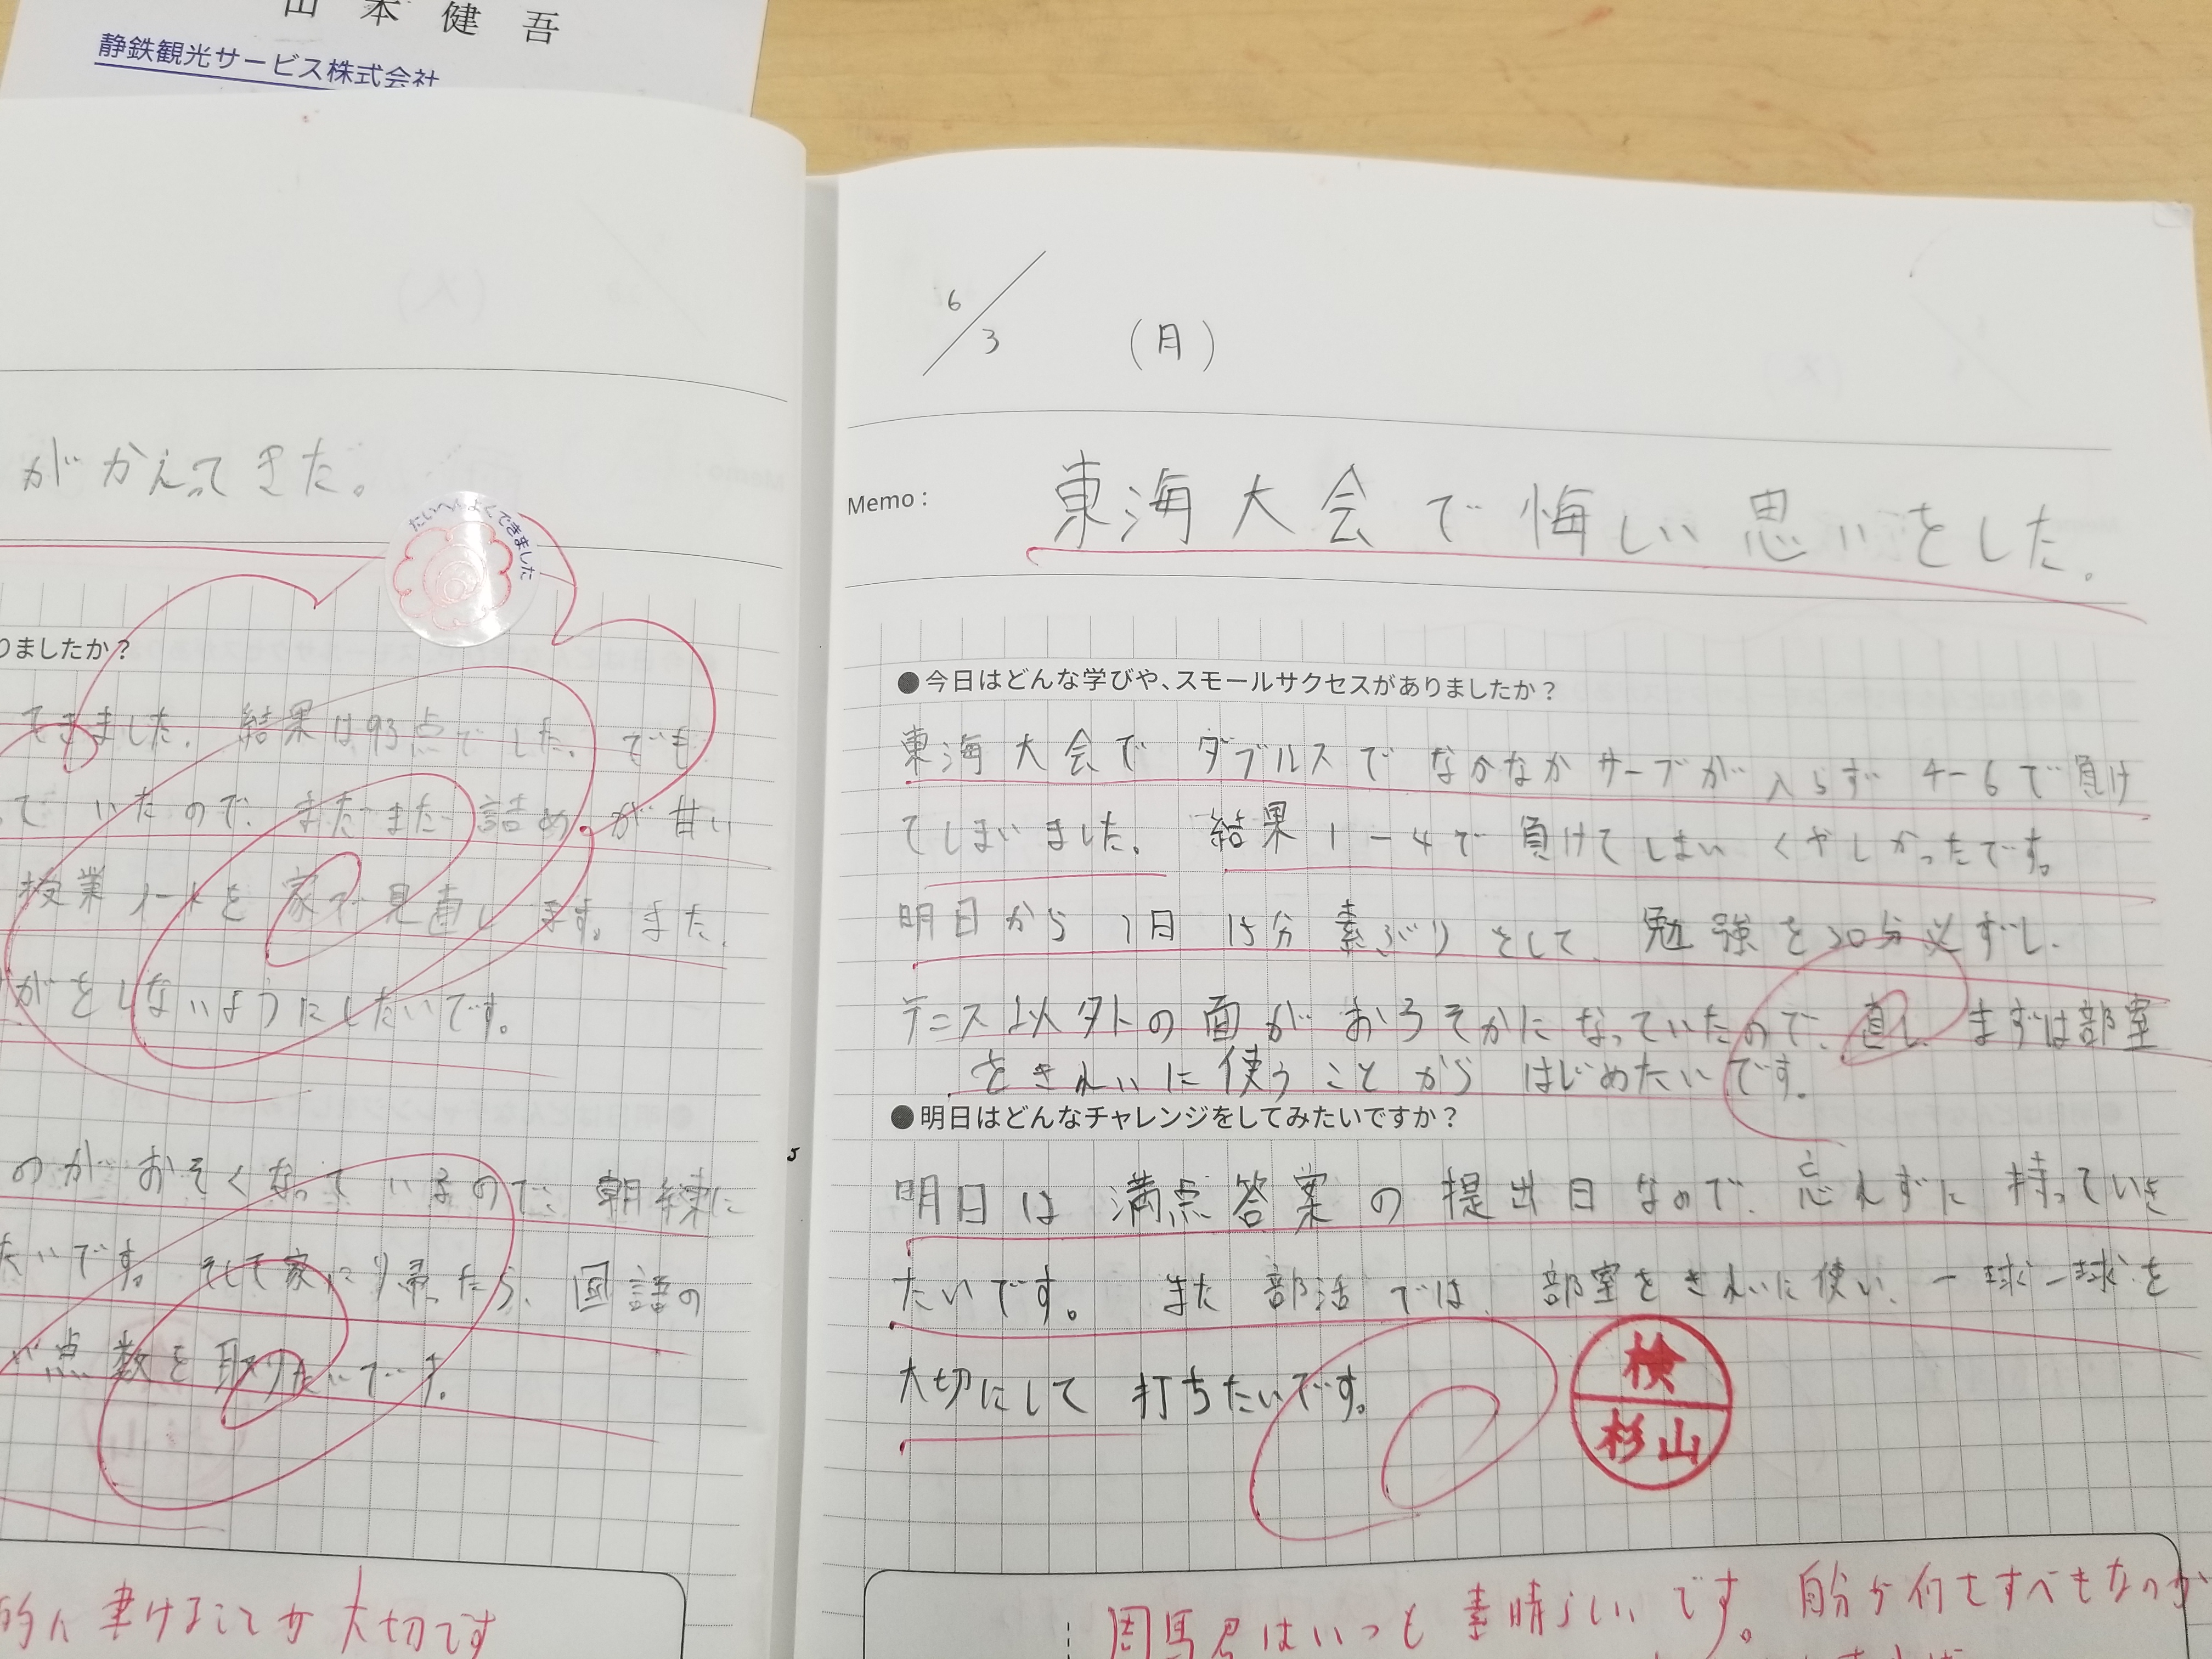 山本健吾
静鉄観光サービス株式会社
がかえってきた。
たいへんよくできました
りましたか？
できました。結果は93点でした。でも
て いたので、まだまだ詰めが甘い
授業ノートを家で見直します。また、
がをしないようにしたいです。
のがおそくなっているので、朝練に
たいです。そして家に帰ったら、国語の
点数を取りたいです。
的に書けることが大切です
6/3 (月)
Memo : 東海大会で悔しい思いをした。
●今日はどんな学びや、スモールサクセスがありましたか？
東海大会で ダブルスで なかなかサーブが入らず 4-6で負け
てしまいました。 結果1-4で負けてしまい くやしかったです。
明日から1日15分素ぶりをして、勉強を30分必ずし、
テニス以外の面がおろそかになっていたので、直し、まずは部室
をきれいに使うことから はじめたいです。
●明日はどんなチャレンジをしてみたいですか？
明日は満点答案の提出日なので、忘れずに持っていき
たいです。 また部活では、部室をきれいに使い、一球一球を
大切にして打ちたいです。
検
杉山
周馬君はいつも素晴らしいです。自分が何をすべきなのか